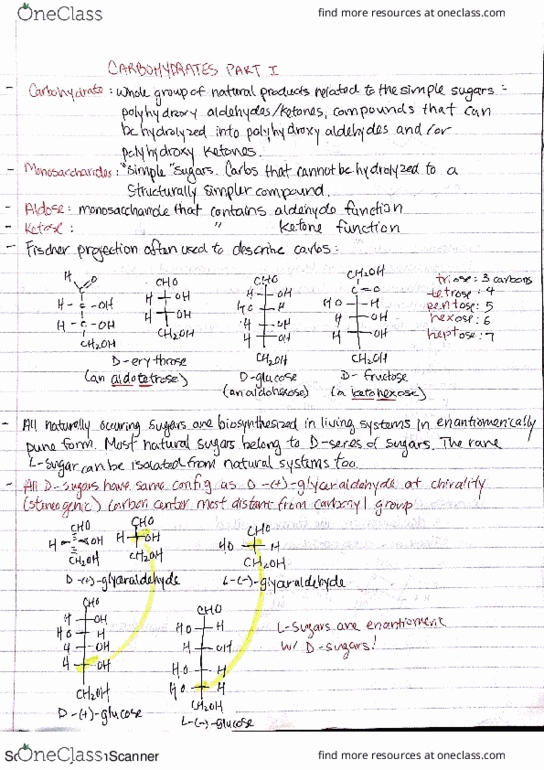 OneClass find more resources at oneclass.com
CARBOHYDRATES PART I
- Carbohydrate: whole group of natural products related to the simple sugars -
polyhydroxy aldehydes/ketones, compounds that can
be hydrolyzed into polyhydroxy aldehydes and/or
polyhydroxy ketones.
- Monosaccharides: "simple" sugars. Carbs that cannot be hydrolyzed to a
structurally simpler compound.
- Aldose: monosaccharide that contains aldehyde function
- Ketose: " ketone function
- Fischer projection often used to describe carbs:
H O CHO CHO CH2OH triose: 3 carbons
C H OH H OH C=O tetrose: 4
H-C-OH H OH HO H HO H pentose: 5
H-C-OH CH2OH H OH H OH hexose: 6
CH2OH H OH H OH heptose: 7
D-erythrose CH2OH CH2OH
(an aldotetrose) D-glucose D-fructose
(an aldohexose) (a ketohexose)
- All naturally occuring sugars are biosynthesized in living systems in enantiomerically
pure form. Most natural sugars belong to D-series of sugars. The rare
L-sugar can be isolated from natural systems too.
- All D-sugars have same config as D-(+)-glyceraldehyde at chirality
(stereogenic) carbon center most distant from carbonyl group
CHO CHO CHO
H OH H OH HO H
CH2OH CH2OH CH2OH
D-(+)-glyceraldehyde L-(-)-glyceraldehyde
CHO CHO
H OH HO H L-sugars are enantiomeric
HO H H OH w/ D-sugars!
H OH HO H
H OH HO H
CH2OH CH2OH
D-(+)-glucose L-(-)-glucose
OneClass Scanner find more resources at oneclass.com